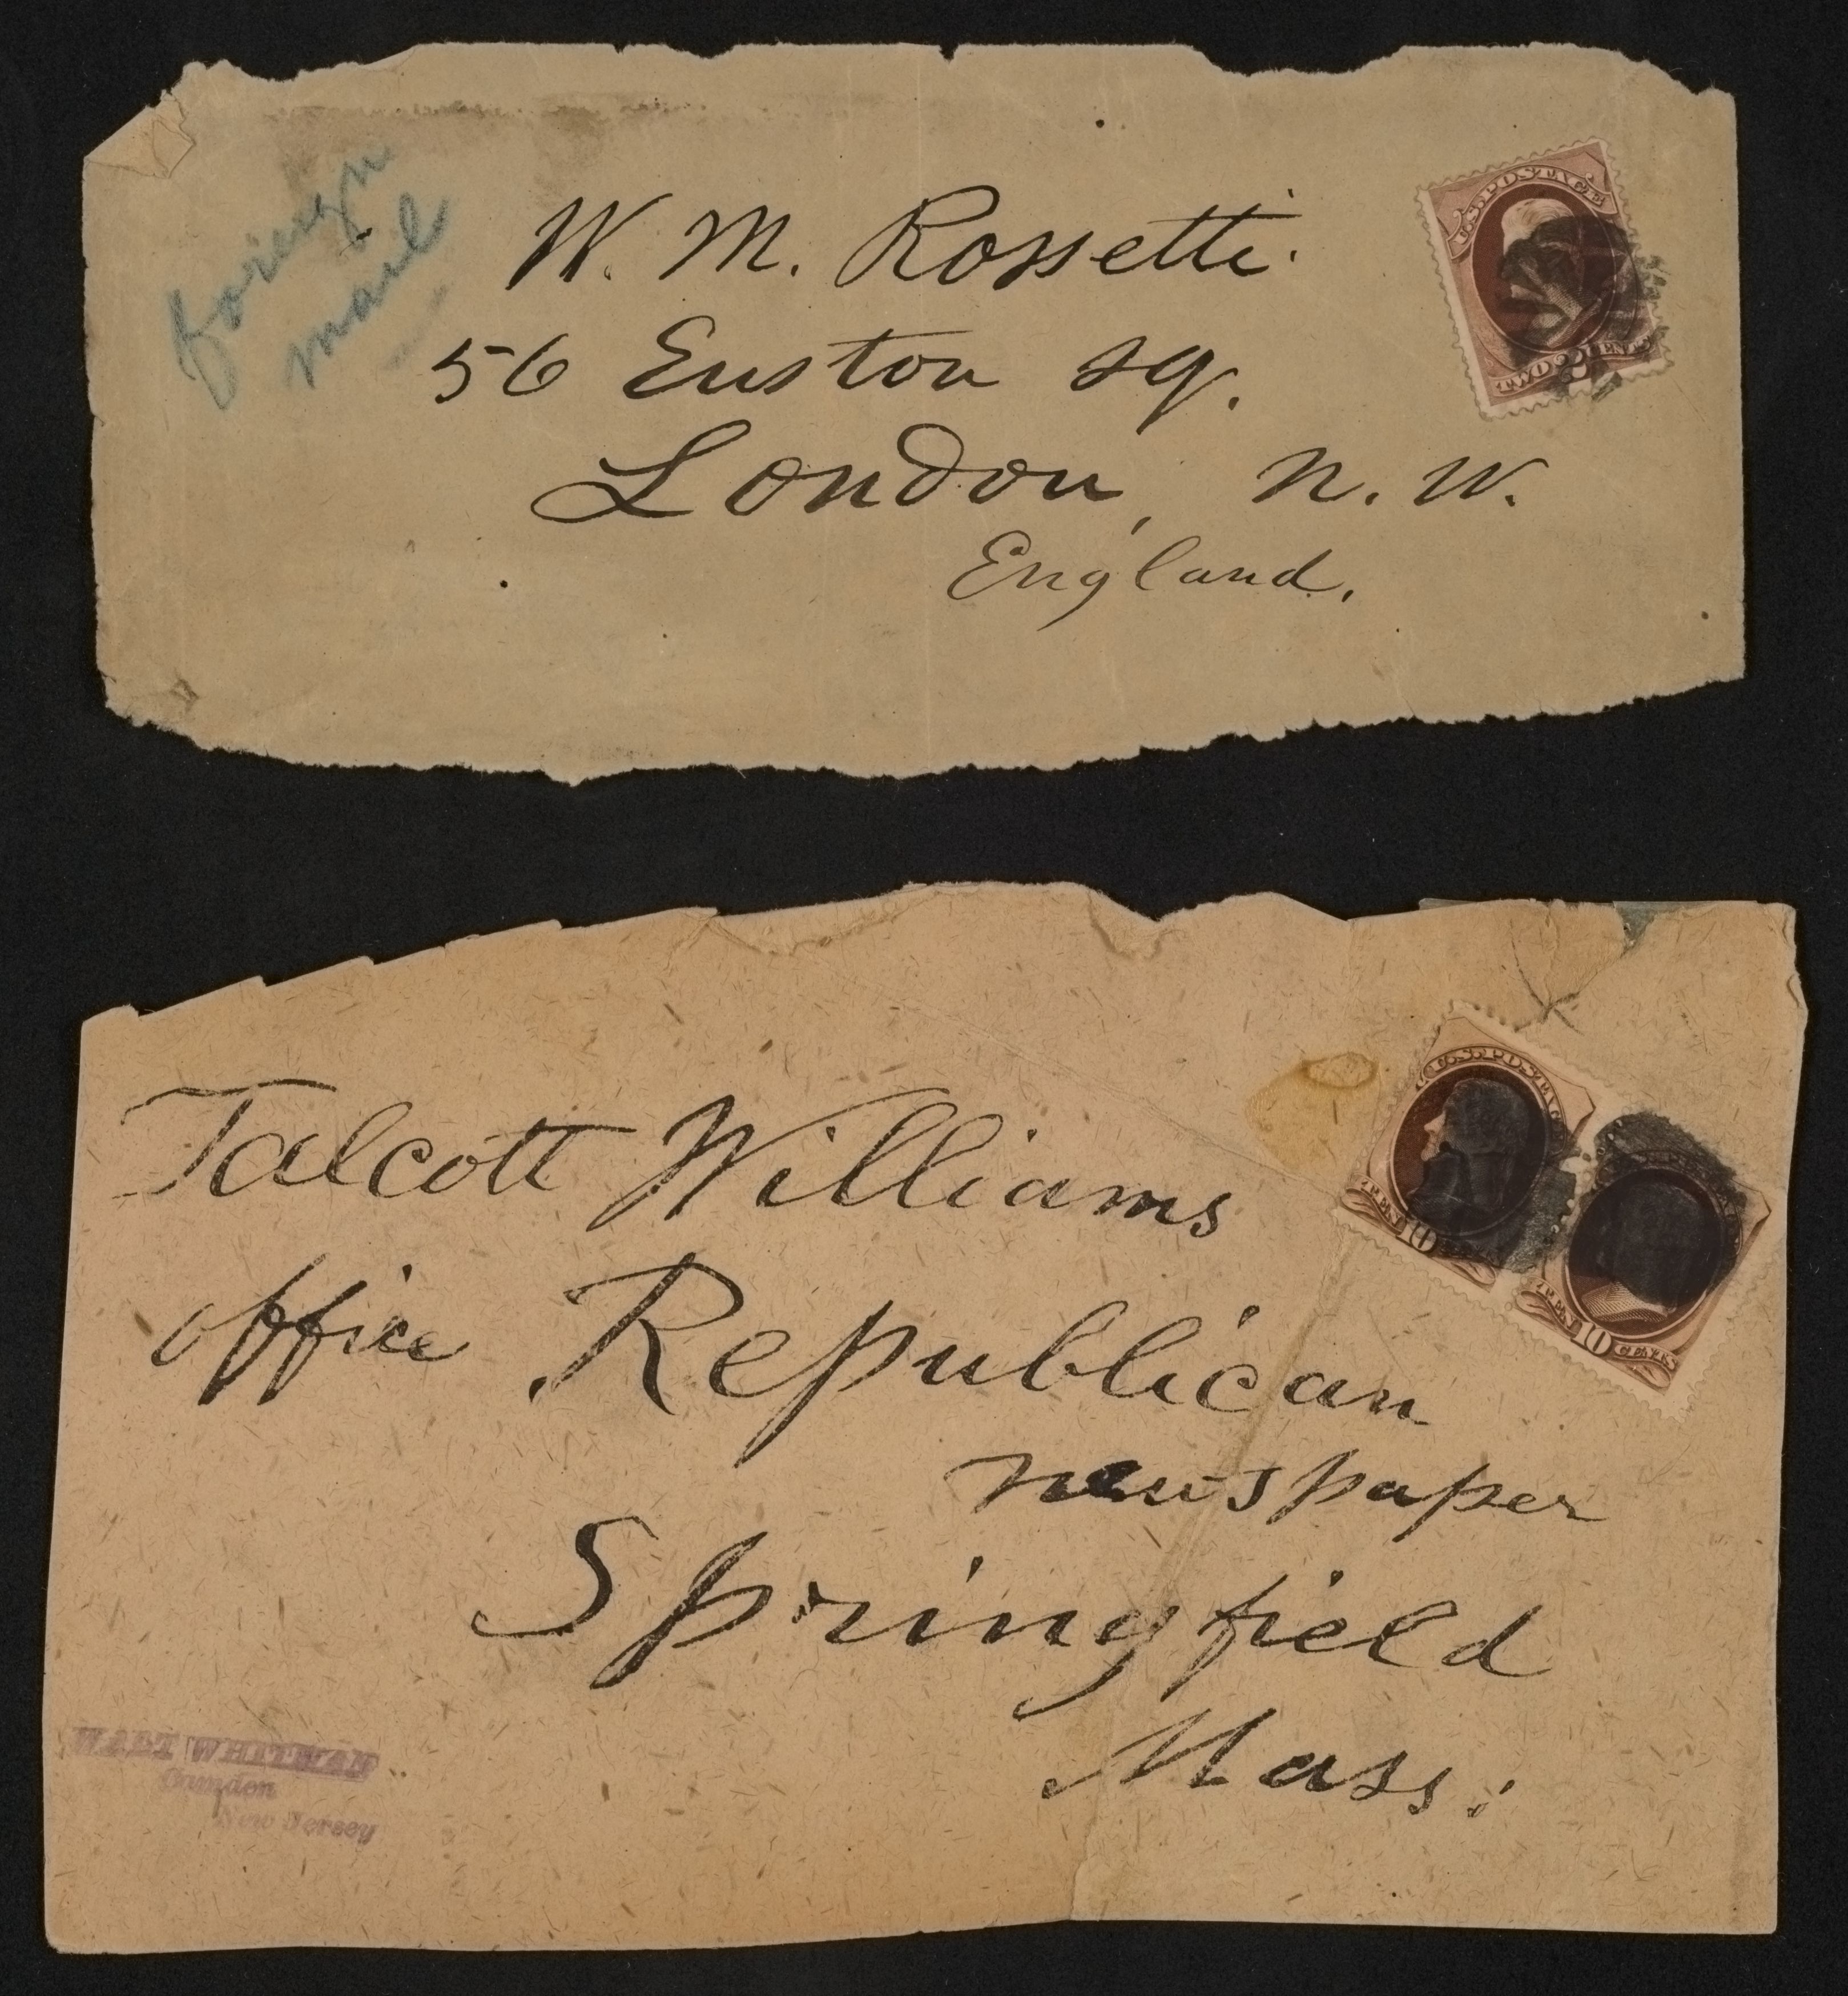 foriegn
mail
W. M. Rossetti.
56 Euston sq.
London, N. W.
England.
U.S. POSTAGE
TWO 2 CENTS
Talcott Williams
office Republican
newspaper
Springfield
Mass:
U.S. POSTAGE
TEN 10
TEN 10 CENTS
WALT WHITMAN
Camden
New Jersey